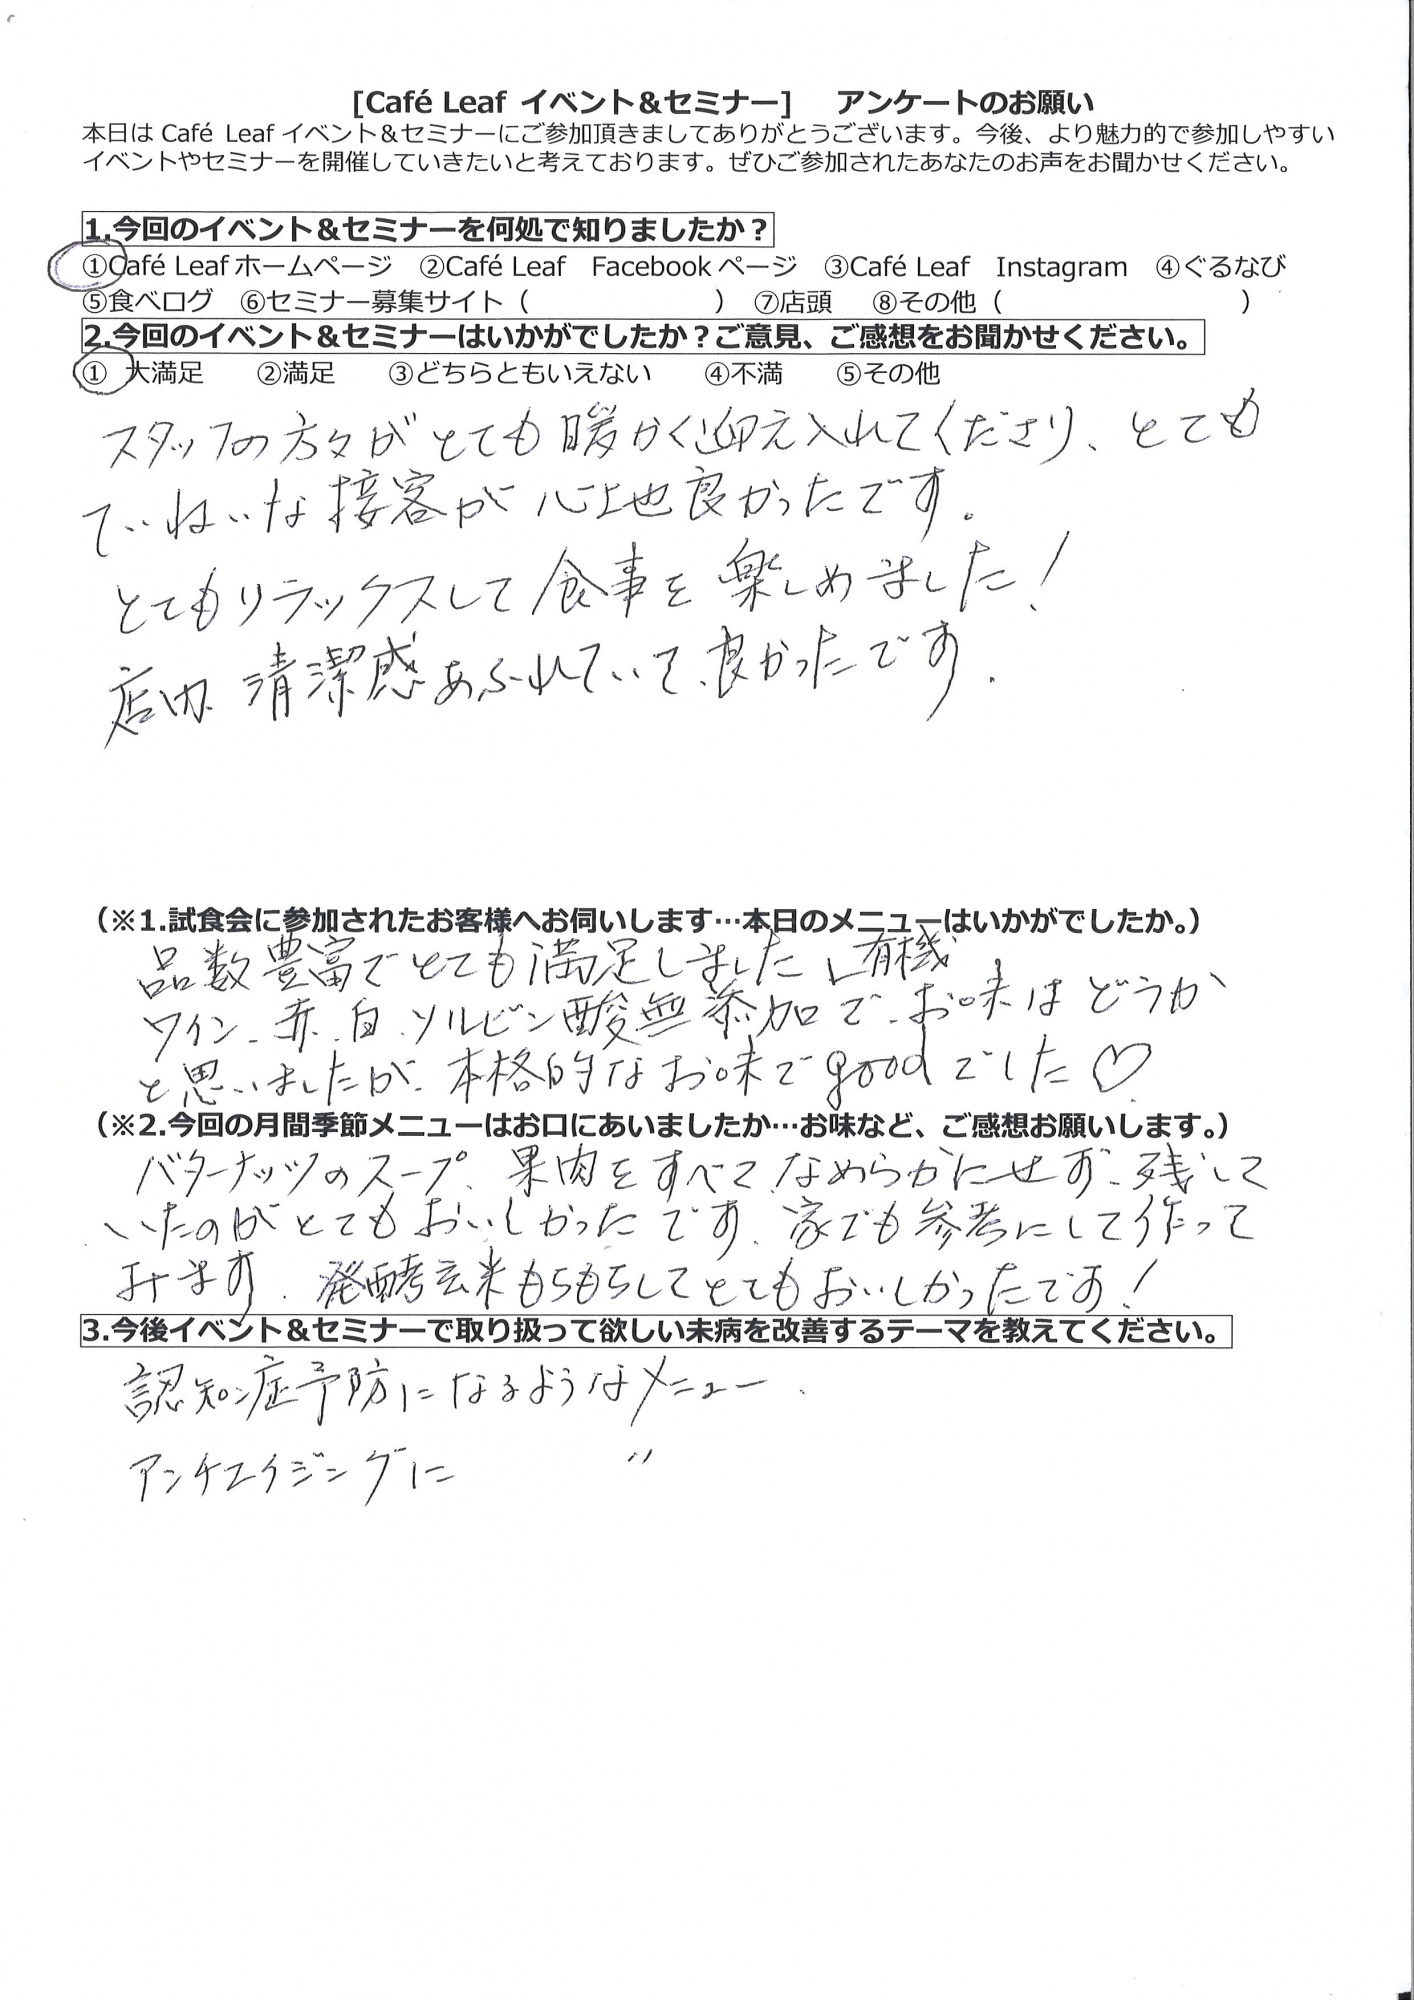 [Café Leaf イベント＆セミナー]　アンケートのお願い
本日は Café Leaf イベント＆セミナーにご参加頂きましてありがとうございます。今後、より魅力的で参加しやすい
イベントやセミナーを開催していきたいと考えております。ぜひご参加されたあなたのお声をお聞かせください。
1.今回のイベント＆セミナーを何処で知りましたか？
①Café Leaf ホームページ　②Café Leaf　Facebook ページ　③Café Leaf　Instagram　④ぐるなび
⑤食べログ　⑥セミナー募集サイト（　　　　　　　）　⑦店頭　⑧その他（　　　　　　　　　）
2.今回のイベント＆セミナーはいかがでしたか？ご意見、ご感想をお聞かせください。
①　大満足　　②満足　　③どちらともいえない　　④不満　　⑤その他
スタッフの方々がとても暖かく迎え入れてくださり、とても
ていねいな接客が心地良かったです。
とてもリラックスして食事を楽しめました！
店内、清潔感あふれていて、良かったです。
（※1.試食会に参加されたお客様へお伺いします…本日のメニューはいかがでしたか。）
品数豊富でとても満足しました。有機
ワイン、赤、白、ソルビン酸無添加で、お味はどうか
と思いましたが、本格的なお味でgoodでした♡
（※2.今回の月間季節メニューはお口にあいましたか…お味など、ご感想お願いします。）
バターナッツのスープ、果肉をすべてなめらかにせず、残して
いたのがとてもおいしかったです。家でも参考にして作って
みます。発酵玄米もちもちしてとてもおいしかったです！
3.今後イベント＆セミナーで取り扱って欲しい未病を改善するテーマを教えてください。
認知症予防になるようなメニュー、
アンチエイジングに　　　〃